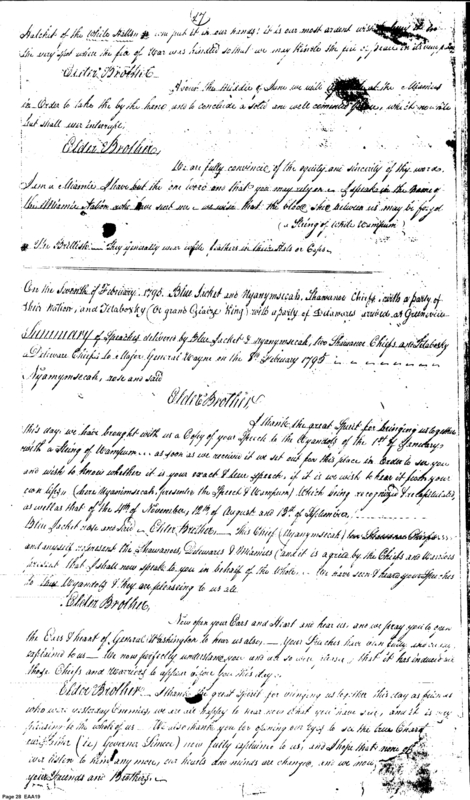 27
Hatchet of the White Hatten * you put it in our hands: it is our most ardent
the very spot where the fire of War was kindled so that we may kindle the fire of peace in its very place
Elder Brother
About the Middle of June we will at the Miamies
in Order to take the by the hand and to conclude a solid and well cemented peace, which no evil
but shall ever Interrupt.
Elder Brother,
We are fully convinced of the equity and sincerity of thy words.
I am a Miamie, I have but the one word and that you may rely on I speak in the Name of
the Miamie Nation who have sent me we wish that the blood between us may be forgot
(a String of White Wampum)
* The British They generally wear white feathers in their Hats or Caps.
On the Seventh of February 1795. Blue Jacket and Nyanymsecah, Shawanoe Chiefs, with a party of
their nation, and Tetabosky (Or grand Glaize King) with a party of Delawares arrived at Greenville
Summary of Speeches delivered by Blue Jacket & Nyanymsecah, two Shawanoe Chiefs and Tetabosky
a Delaware Chief to Major General Wayne on the 8th February 1795
Nyanymsecah, rose and said
Elder Brother,
I thank the great Spirit for bringing us together
this day. we have brought with us a Copy of your Speech to the Wyandots of the 1st of January
with a String of Wampum... as soon as we received it we set out for this place in Order to see you
and wish to know whether it is your exact & true speech, if it is we wish to hear it from your
own lips, (here Nyanimsecah, presents the Speech & Wampum) Which being recognized & recapitulated,
as well as that of the 4th of November, 12th of August and 13th of September.
Blue Jacket rose and said Elder Brother This Chief (Nyanymsecah) two Shawanoe Chiefs
and myself represent the Shawanoes, Delawares & Miamies (and it is agreed by the Chiefs and Warriors
present that I shall now speak to you in behalf of the Whole. We have seen & heard your Speeches
to the Wyandots & they are pleasing to us all
Elder Brother,
Now open your Ears and Heart and hear us, and we pray you to open
the Ears & heart of General Washington to hear us also, Your Speeches have been fully and
explained to us We now perfectly understand you and that it has induced
those Chiefs and Warriors to appear before you this day.
Elder Brother I thank the great Spirit for bringing us together this day as friends
who were yesterday Enemies, we are all happy to hear now what you have said, and it is very
pleasing to the whole of us We also thank you for opening our Eyes to see the true
(i.e.) Governor Simcoe) now fully explained to us, and I hope that none of
our listen to him any more, our hearts and minds are changed, and we now
your Friends and Brothers
Page 28 EAA19